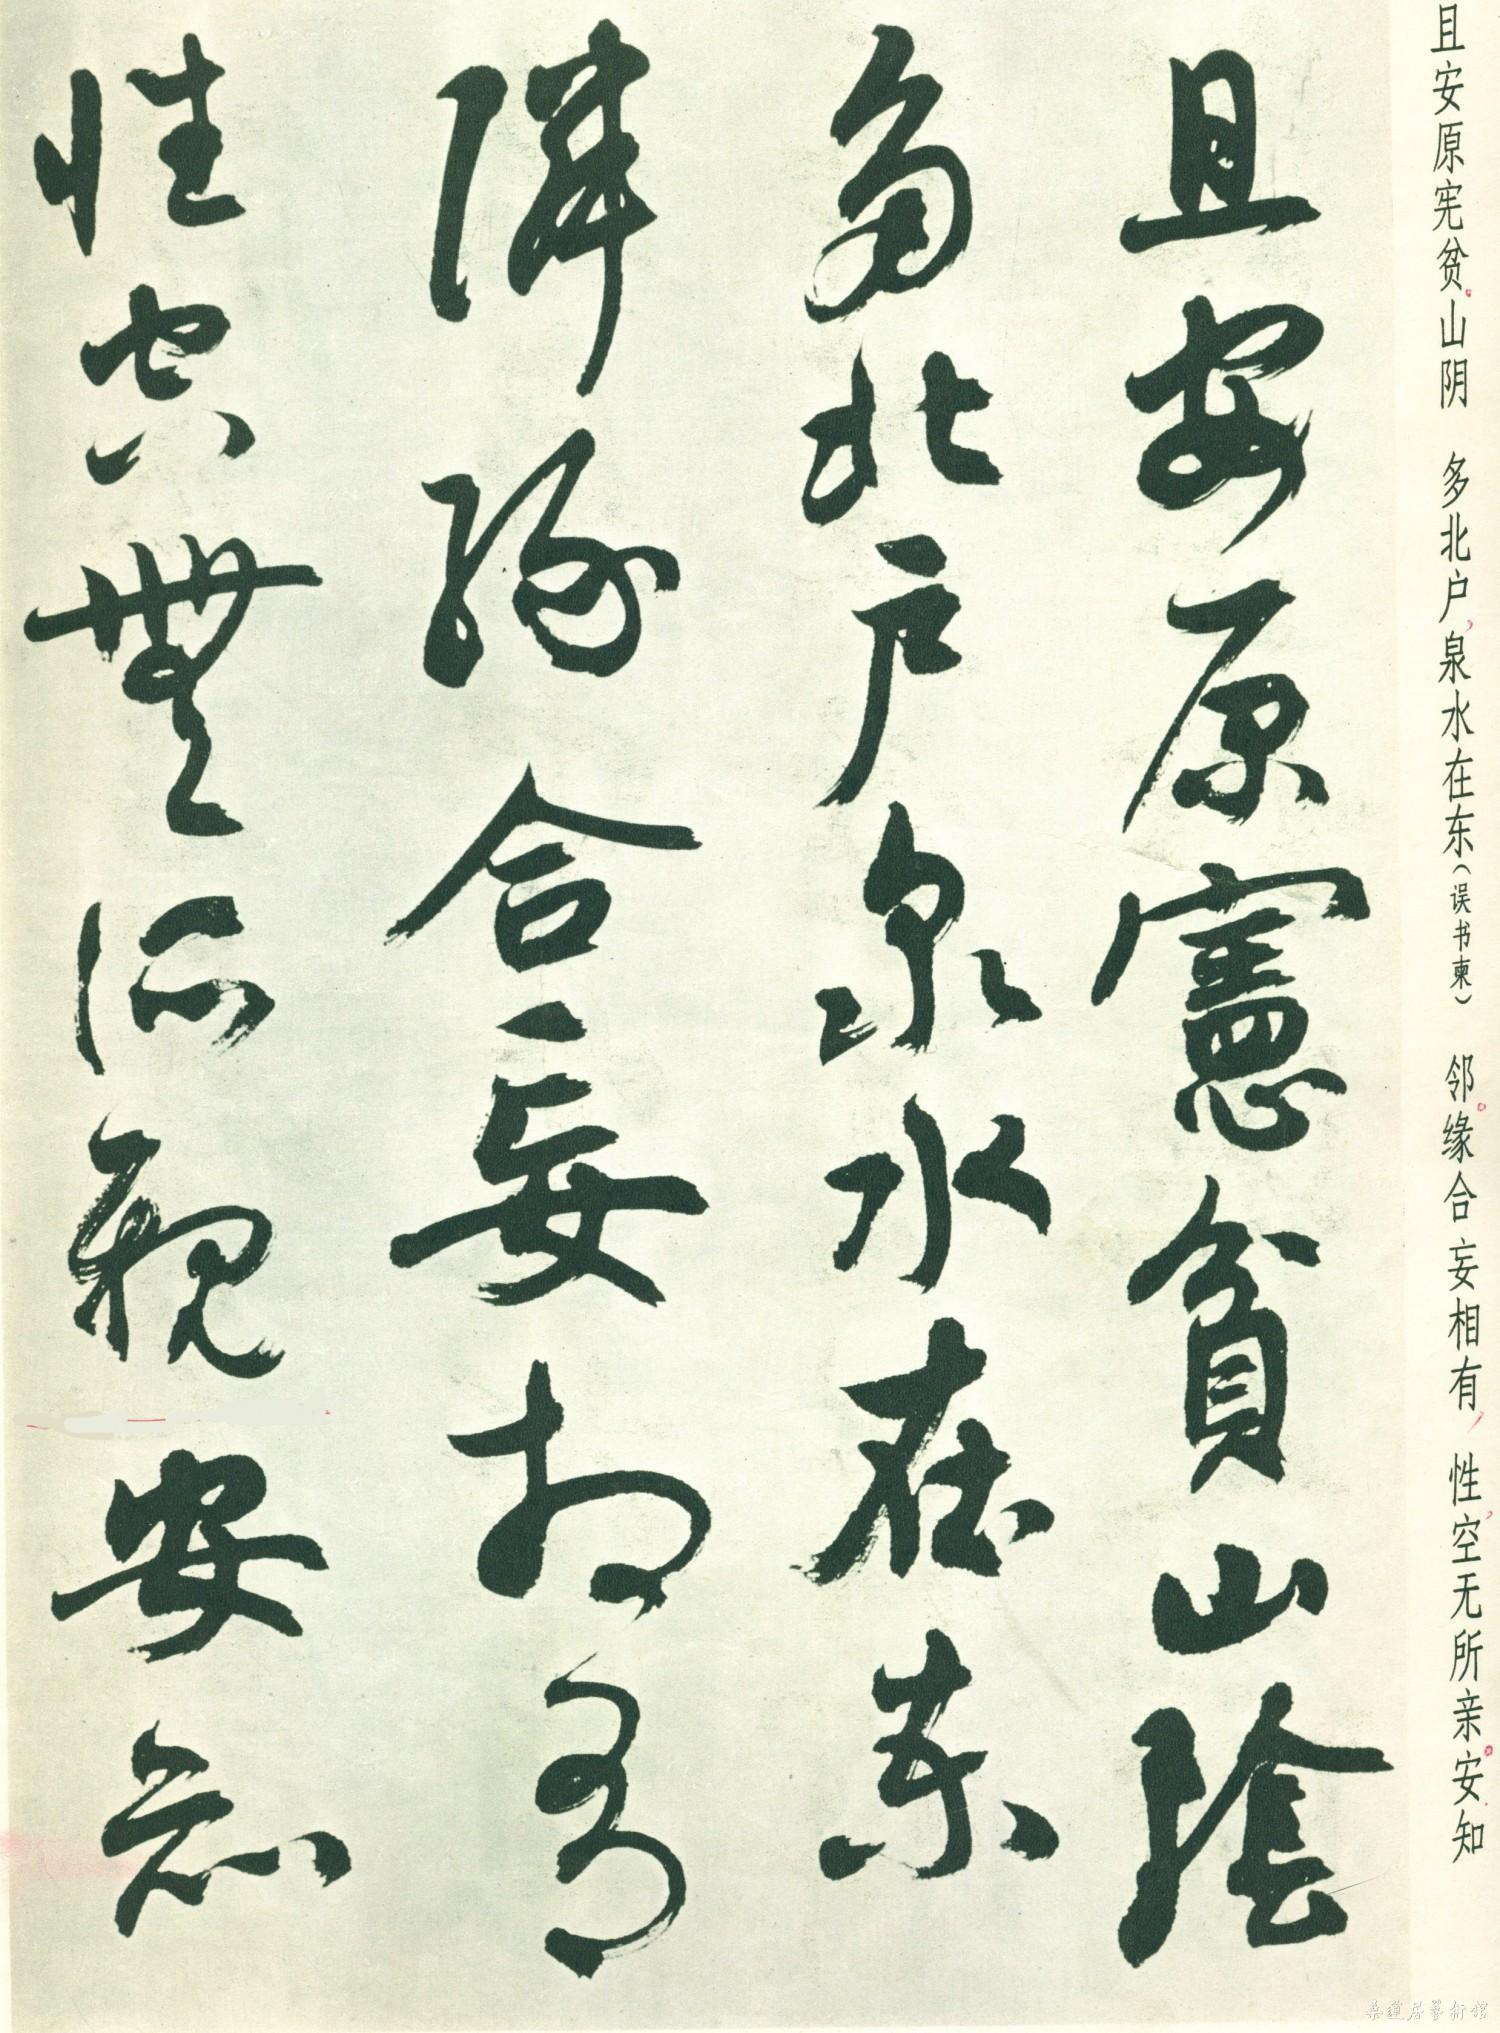 且安原宪贫山阴 多北户,泉水在东(误书柬) 邻缘合妄相有, 性空无所亲安知
且安原憲貧山陰
多北戶泉水在柬
隣緣合妄相有
性空無所親安知
桑蓮居藝術館